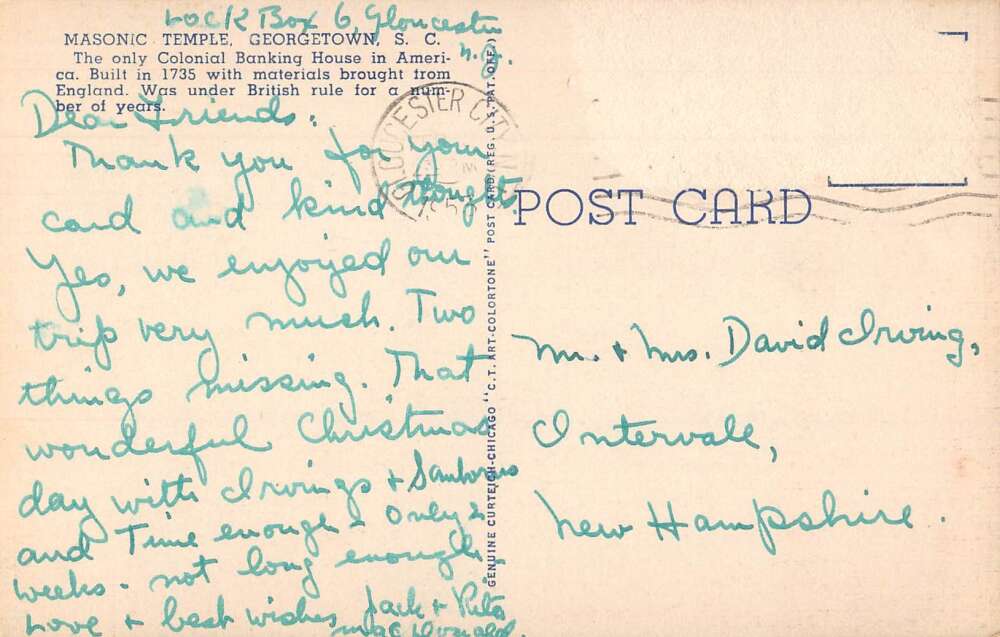 Lock Box 6, Gloucester
N. J.
MASONIC TEMPLE, GEORGETOWN, S. C.
The only Colonial Banking House in Ameri-
ca. Built in 1735 with materials brought from
England. Was under British rule for a num-
ber of years.
Dear Friends:
Thank you for your
card and kind thoughts.
Yes, we enjoyed our
trip very much. Two
things missing. That
wonderful Christmas
day with Irvings + Sanborns
and Time enough - only 2
weeks - not long enough,
Love + best wishes, Jack + Rita
MacDonald.
GLOUCESTER CITY, N
GENUINE CURTEICH-CHICAGO "C.T. ART-COLORTONE" POST CARD (REG. U.S. PAT. OFF.)
POST CARD
Mr. + Mrs. David Irving,
Intervale,
New Hampshire.